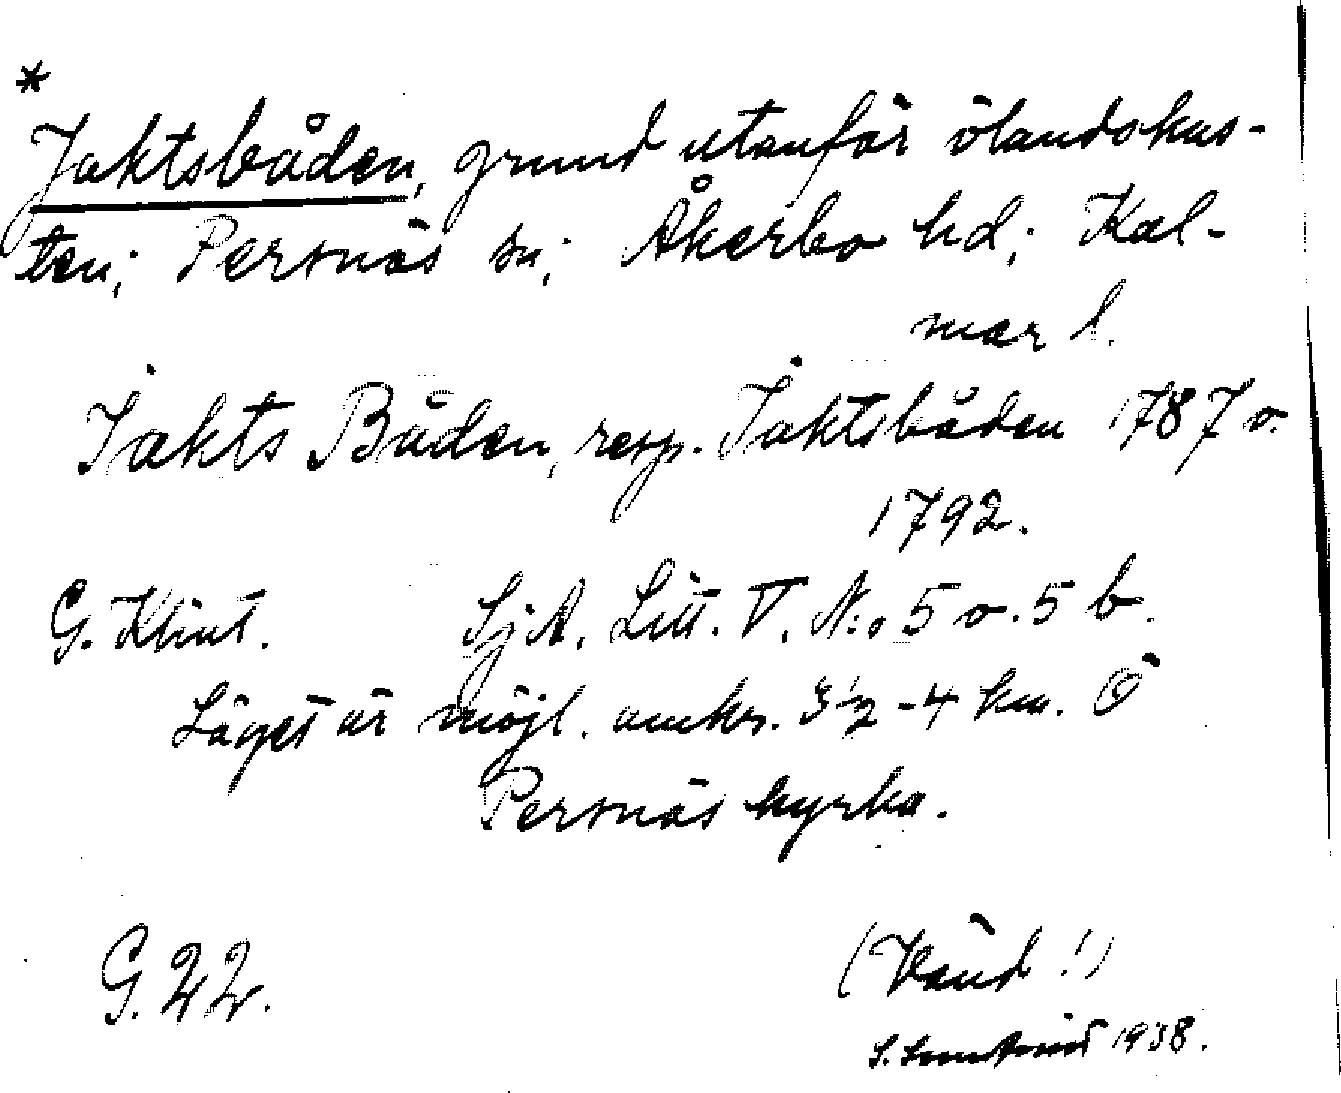 *
Jaktsbåden, grund utanför ölandskus-
ten; Persnäs sn; Åkerbo hd; Kal-
mar l.
Jakts Båden, resp. Jaktsbåden 1787 o.
1792.
G. Klint. SjA. Litt. V. N:o 5 o. 5 b.
Läget är möjl. omkr. 3 1/2 - 4 km. Ö
Persnäs kyrka.
G. 22.
(Vänd!)
S. 1938.